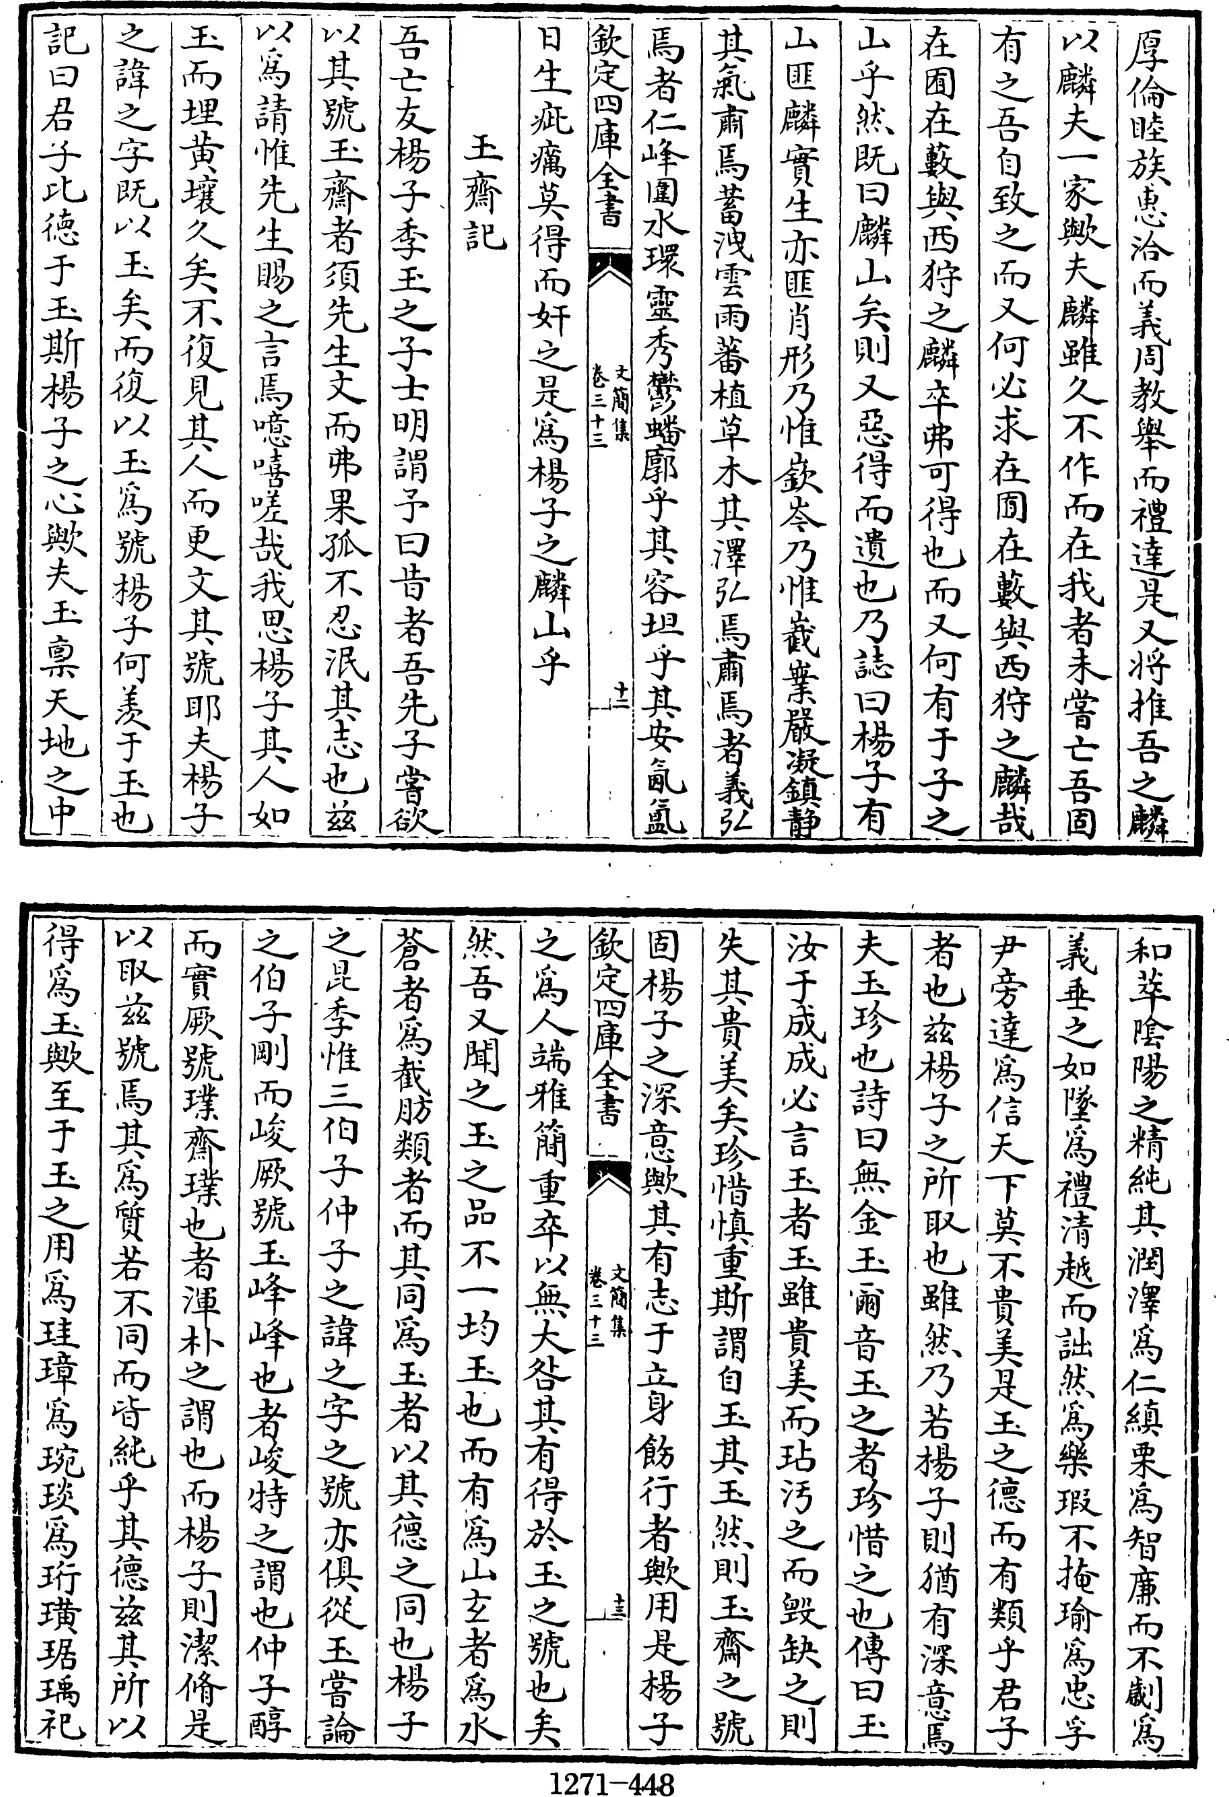 厚倫睦族惠洽而義周教舉而禮達是又將推吾之麟
以麟夫一家歟夫麟雖久不作而在我者未嘗亡吾固
有之吾自致之而又何必求在囿在藪與西狩之麟哉
在囿在藪與西狩之麟卒弗可得也而又何有于子之
山乎然既曰麟山矣則又惡得而遺也乃誌曰楊子有
山匪麟實生亦匪肖形乃惟嶔岑乃惟嶻嶪嚴凝鎮静
其氣肅焉蓄洩雲雨蕃植草木其澤弘焉肅焉者義弘
焉者仁峰圍水環靈秀鬱蟠廓乎其容坦乎其安氤氲
欽定四庫全書
文簡集
卷三十三
十二
日生疵癘莫得而奸之是為楊子之麟山乎
玉齋記
吾亡友楊子季玉之子士明謂予曰昔者吾先子嘗欲
以其號玉齋者須先生文而弗果孤不忍泯其志也兹
以為請惟先生賜之言焉噫嘻嗟哉我思楊子其人如
玉而埋黄壤久矣不復見其人而更文其號耶夫楊子
之諱之字既以玉矣而復以玉為號楊子何羨于玉也
記曰君子比德于玉斯楊子之心歟夫玉禀天地之中
和萃陰陽之精純其潤澤為仁縝栗為智廉而不劌為
義垂之如墜為禮清越而詘然為樂瑕不掩瑜為忠孚
尹旁達為信天下莫不貴美是玉之德而有類乎君子
者也兹楊子之所取也雖然乃若楊子則猶有深意焉
夫玉珍也詩曰無金玉爾音玉之者珍惜之也傳曰玉
汝于成成必言玉者玉雖貴美而玷汚之而毁缺之則
失其貴美矣珍惜慎重斯謂自玉其玉然則玉齋之號
固楊子之深意歟其有志于立身飭行者歟用是楊子
欽定四庫全書
文簡集
卷三十三
十三
之為人端雅簡重卒以無大咎其有得於玉之號也矣
然吾又聞之玉之品不一均玉也而有為山玄者為水
蒼者為截肪類者而其同為玉者以其德之同也楊子
之昆季惟三伯子仲子之諱之字之號亦俱從玉嘗論
之伯子剛而峻厥號玉峰峰也者峻特之謂也仲子醇
而實厥號璞齋璞也者渾朴之謂也而楊子則潔脩是
以取兹號焉其為質若不同而皆純乎其德兹其所以
得為玉歟至于玉之用為珪璋為琬琰為珩璜琚瑀祀
1271-448